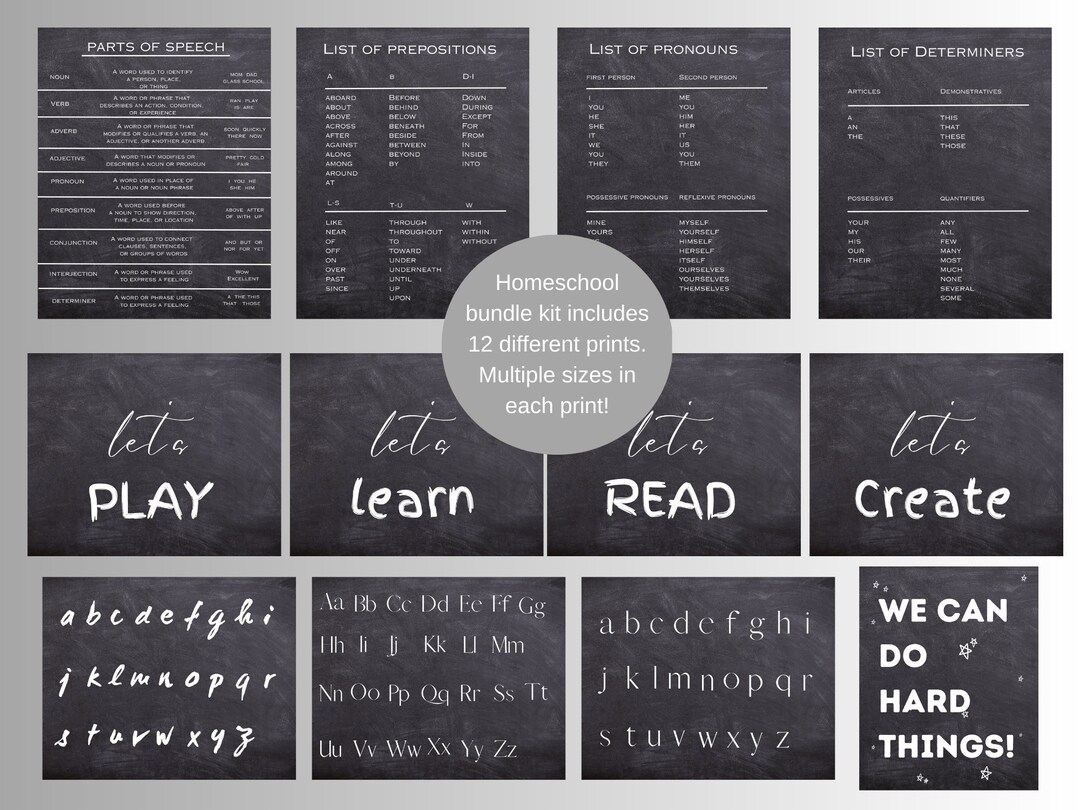 PARTS OF SPEECH
NOUN
A WORD USED TO IDENTIFY
A PERSON, PLACE,
OR THING
MOM DAD
CLASS SCHOOL
VERB
A WORD OR PHRASE THAT
DESCRIBES AN ACTION, CONDITION,
OR EXPERIENCE
RAN PLAY
IS ARE
ADVERB
A WORD OR PHRASE THAT
MODIFIES OR QUALIFIES A VERB, AN
ADJECTIVE, OR ANOTHER ADVERB
SOON QUICKLY
THERE NOW
ADJECTIVE
A WORD THAT MODIFIES OR
DESCRIBES A NOUN OR PRONOUN
PRETTY COLD
FAIR
PRONOUN
A WORD USED IN PLACE OF
A NOUN OR NOUN PHRASE
I YOU HE
SHE HIM
PREPOSITION
A WORD USED BEFORE
A NOUN TO SHOW DIRECTION,
TIME, PLACE, OR LOCATION
ABOVE AFTER
OF WITH UP
CONJUNCTION
A WORD USED TO CONNECT
CLAUSES, SENTENCES,
OR GROUPS OF WORDS
AND BUT OR
NOR FOR YET
INTERJECTION
A WORD OR PHRASE USED
TO EXPRESS A FEELING
WOW
EXCELLENT
DETERMINER
A WORD OR PHRASE USED
TO EXPRESS A FEELING
A THE THIS
THAT THOSE
LIST OF PREPOSITIONS
A
ABOARD
ABOUT
ABOVE
ACROSS
AFTER
AGAINST
ALONG
AMONG
AROUND
AT
B
BEFORE
BEHIND
BELOW
BENEATH
BESIDE
BETWEEN
BEYOND
BY
D-I
DOWN
DURING
EXCEPT
FOR
FROM
IN
INSIDE
INTO
L-S
LIKE
NEAR
OF
OFF
ON
OVER
PAST
SINCE
T-U
THROUGH
THROUGHOUT
TO
TOWARD
UNDER
UNDERNEATH
UNTIL
UP
UPON
W
WITH
WITHIN
WITHOUT
LIST OF PRONOUNS
FIRST PERSON
I
YOU
HE
SHE
IT
WE
YOU
THEY
SECOND PERSON
ME
YOU
HIM
HER
IT
US
YOU
THEM
POSSESSIVE PRONOUNS
MINE
YOURS
REFLEXIVE PRONOUNS
MYSELF
YOURSELF
HIMSELF
HERSELF
ITSELF
OURSELVES
YOURSELVES
THEMSELVES
LIST OF DETERMINERS
ARTICLES
A
AN
THE
DEMONSTRATIVES
THIS
THAT
THESE
THOSE
POSSESSIVES
YOUR
MY
HIS
OUR
THEIR
QUANTIFIERS
ANY
ALL
FEW
MANY
MOST
MUCH
NONE
SEVERAL
SOME
Homeschool
bundle kit includes
12 different prints.
Multiple sizes in
each print!
let's
PLAY
let's
learn
let's
READ
let's
Create
a b c d e f g h i
j k l m n o p q r
s t u v w x y z
Aa Bb Cc Dd Ee Ff Gg
Hh Ii Jj Kk Ll Mm
Nn Oo Pp Qq Rr Ss Tt
Uu Vv Ww Xx Yy Zz
a b c d e f g h i
j k l m n o p q r
s t u v w x y z
WE CAN
DO
HARD
THINGS!